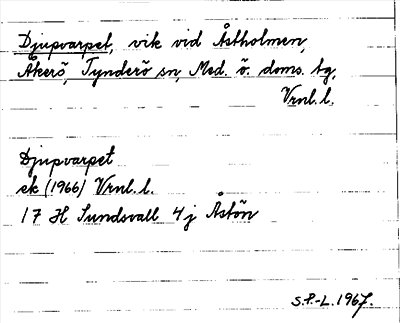 Djupvarpet, vik vid Åstholmen,
Åkerö, Tynderö sn, Med. ö. doms. tg,
Vrnl. l.
Djupvarpet
ek (1966) Vrnl. l.
17 H Sundsvall 4j Åstön
S.P.-L. 1967.